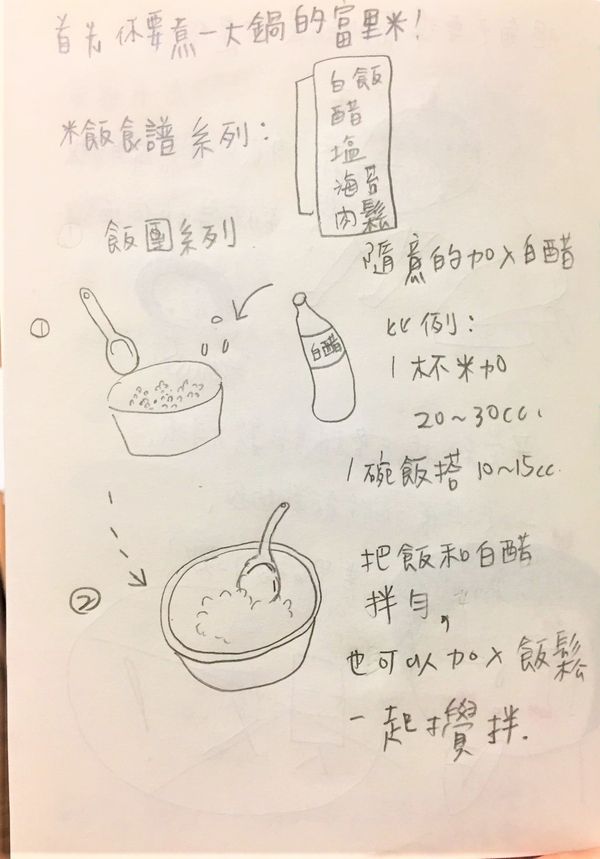 首先你要煮一大鍋的富里米!
米飯食譜系列:
白飯
醋
塩
海苔
肉鬆
飯團系列
隨意的加入白醋
①
白醋
比例:
1杯米加
20~30cc.
1碗飯搭10~15cc.
②
把飯和白醋
拌勻,
也可以加入飯鬆
一起攪拌.